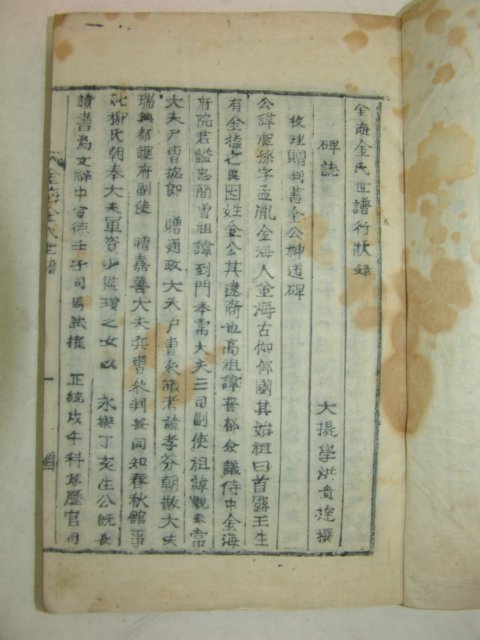 金海金氏世譜行狀錄
碑誌 大提學洪貴達撰
校理贈判書金公神道碑
公諱係字孟胤金海人金海古伽倻國其始祖曰首露王生
有金櫃之異因姓金公其遠裔也高祖諱普都僉議侍中金海
府院君謚忠簡曾祖諱到門奉常大夫三司副使祖諱觀奉常
大夫戶曹摠郎 贈通政大夫戶曹參議考諱孝芬朝散大夫
瑞興都護府副使 贈嘉善大夫兵曹參判兼同知春秋館事
妣柳氏朝奉大夫軍資少監瓊之女以 永樂丁亥生公旣長
讀書為文辭中宣德壬子司馬試擢 正統戊午科 歷官司
金海金氏世譜